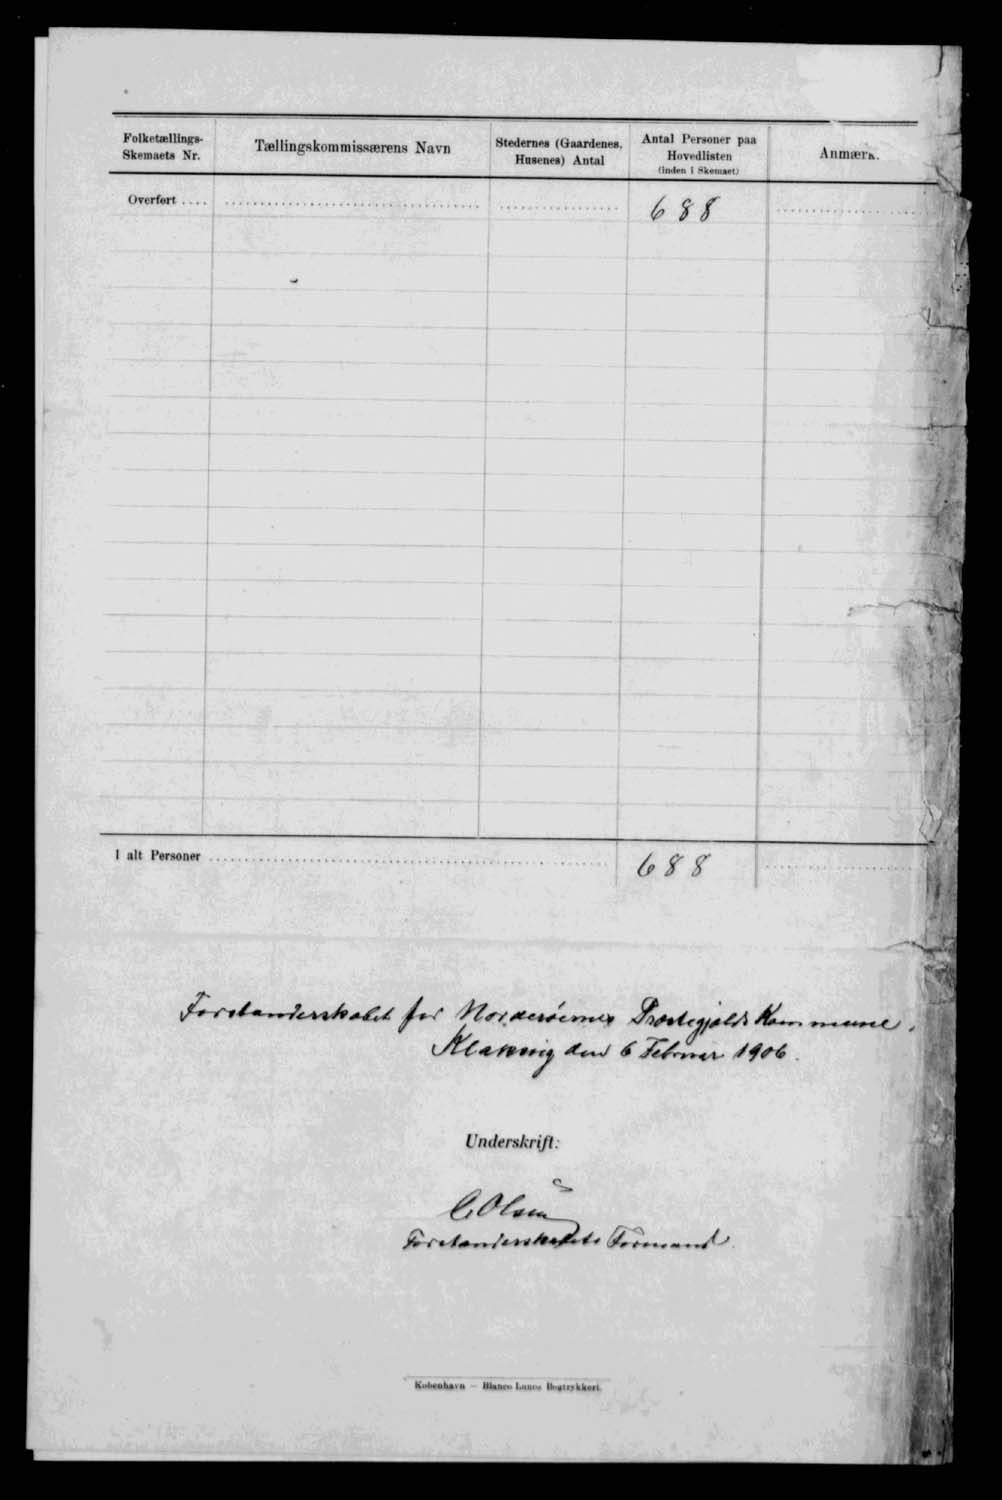 Folketællings-
Skemaets Nr.
Tællingskommissærens Navn
Stedernes (Gaardenes,
Husenes) Antal
Antal Personer paa
Hovedlisten
(inden i Skemaet)
Anmærk.
Overført .... 688
I alt Personer 688
Forstanderskabet for Norderøernes Præstegjælds Kommune.
Klaksvig den 6 Februar 1906.
Underskrift:
C Olsen
Forstanderskabets Formand.
København — Bianco Lunos Bogtrykkeri.